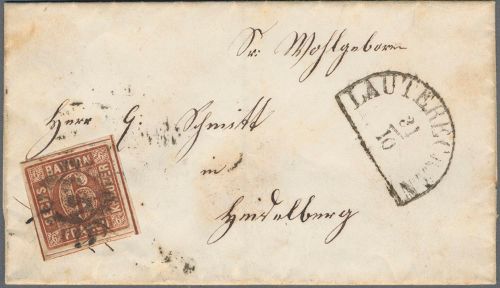 Sr. Wohlgeborn
Herr G. Schmitt
in
Heidelberg
LAUTERECKEN
31
10
BAYERN
6
SECHS
KREUZER